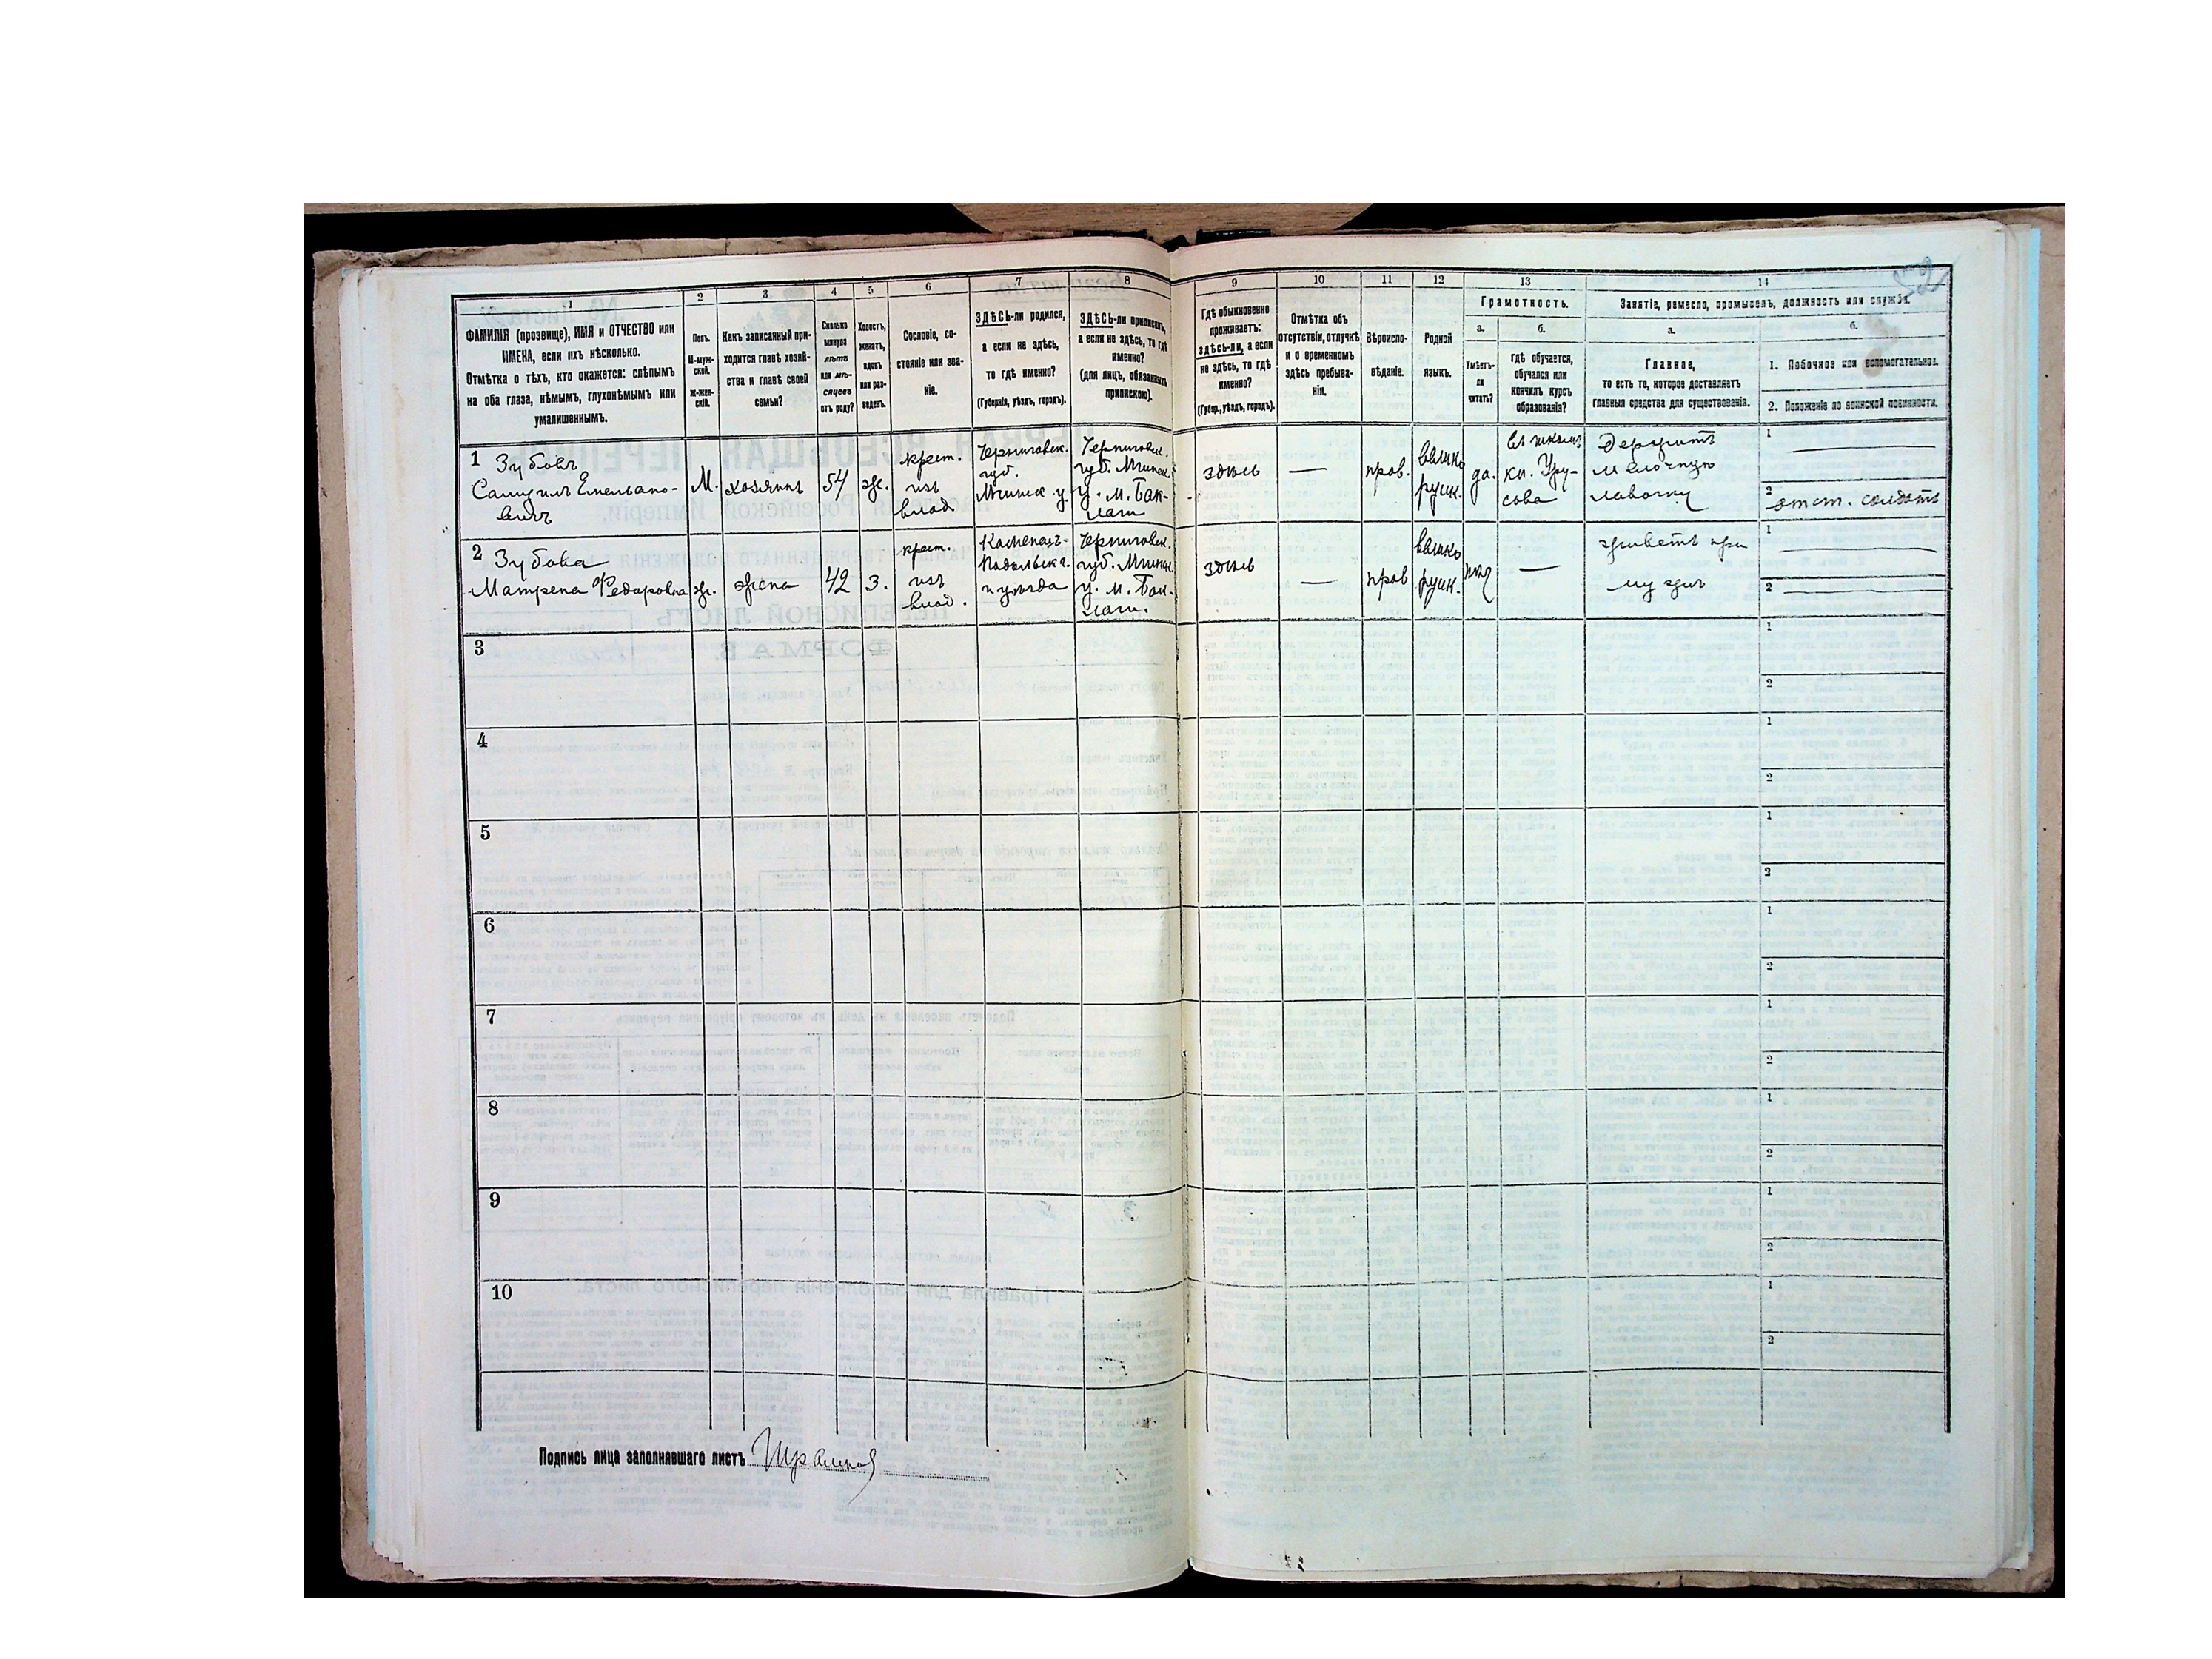 52
1
2
3
4
5
6
7
8
9
10
11
12
13
14
ФАМИЛІЯ (прозвище), ИМЯ и ОТЧЕСТВО или
ИМЕНА, если ихъ нѣсколько.
Отмѣтка о тѣхъ, кто окажется: слѣпымъ
на оба глаза, нѣмымъ, глухонѣмымъ или
умалишеннымъ.
Полъ.
М-муж-
ской.
ж-жен-
скій.
Какъ записанный при-
ходится главѣ хозяй-
ства и главѣ своей
семьи?
Сколько
минуло
лѣтъ
или мѣ-
сяцевъ
отъ роду?
Холостъ,
женатъ,
вдовъ
или раз-
веденъ.
Сословіе, со-
стояніе или зва-
ніе.
ЗДѢСЬ-ли родился,
а если не здѣсь,
то гдѣ именно?
(Губернія, уѣздъ, городъ).
ЗДѢСЬ-ли приписанъ,
а если не здѣсь, то гдѣ
именно?
(для лицъ, обязанныхъ
припискою).
Гдѣ обыкновенно
проживаетъ:
здѣсь-ли, а если
не здѣсь, то гдѣ
именно?
(Губер., уѣздъ, городъ).
Отмѣтка объ
отсутствіи, отлучкѣ
и о временномъ
здѣсь пребыва-
ніи.
Вѣроиспо-
вѣданіе.
Родной
языкъ.
Грамотность.
а.
Умѣетъ-
ли
читать?
б.
гдѣ обучается,
обучался или
кончилъ курсъ
образованія?
Занятіе, ремесло, промыселъ, должность или служба.
а.
Главное,
то есть то, которое доставляетъ
главныя средства для существованія.
б.
1. Побочное или вспомогательное.
2. Положеніе по воинской повинности.
1 Зубовъ
Самуилъ Емельяно-
вичъ
М.
хозяинъ
54
ж.
крест.
изъ
влад.
Черниговск.
губ.
Мглинск у.
Черниговск.
губ. Мглинск
у. м. Бак-
лань
здѣсь
—
прав.
велико
русск.
да.
въ школѣ
кн. Уру-
сова
Держитъ
мелочную
лавочку
1 —
2 отст. солдатъ
2 Зубова
Матрена Федоровна
ж.
жена
42
з.
крест.
изъ
влад.
Каменецъ-
Подольск г.
и уѣзда
Черниговск.
губ. Мглинск
у. м. Бак-
лань.
здѣсь
—
прав
велико
русск.
нѣт
—
живетъ при
мужѣ
1 —
2 —
3
1
2
4
1
2
5
1
2
6
1
2
7
1
2
8
1
2
9
1
2
10
1
2
Подпись лица заполнявшаго листъ